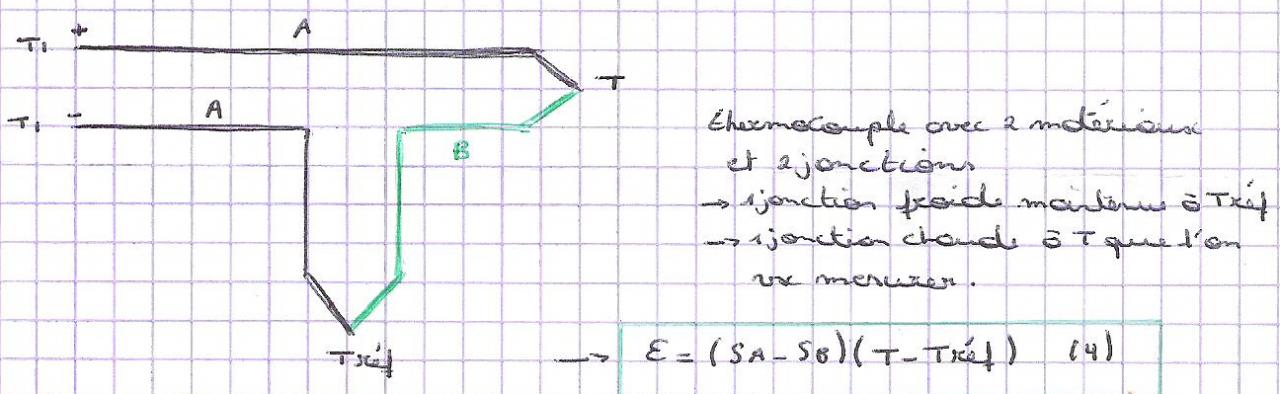 + A
T1
T
- A
T1
B
Tréf
thermocouple avec 2 matériaux
et 2 jonctions
→ 1 jonction froide maintenue à Tréf
→ 1 jonction chaude à T que l'on
vx mesurer.
→ Ɛ = (SA - SB)(T - Tréf) (4)